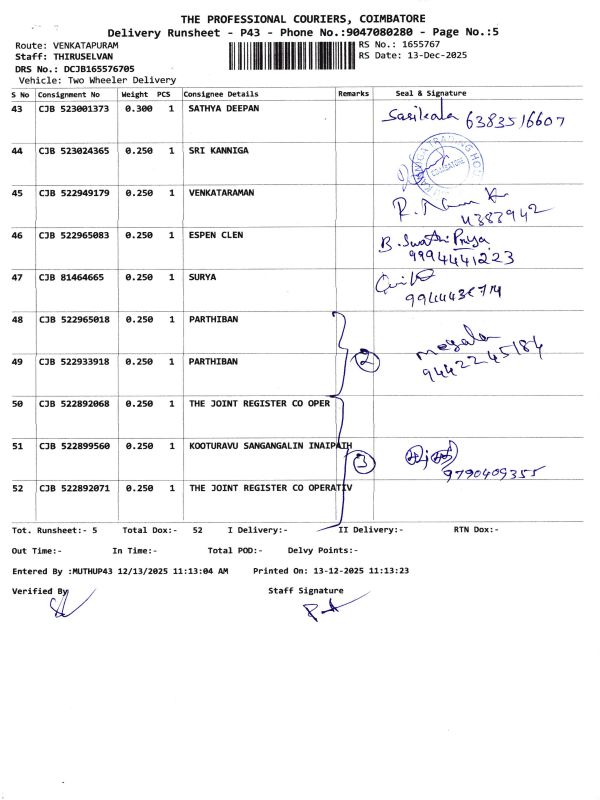 THE PROFESSIONAL COURIERS, COIMBATORE
Delivery Runsheet - P43 - Phone No.:9047080280 - Page No.:5
Route: VENKATAPURAM RS No.: 1655767
Staff: THIRUSELVAN RS Date: 13-Dec-2025
DRS No.: DCJB165576705
Vehicle: Two Wheeler Delivery
S No Consignment No Weight PCS Consignee Details Remarks Seal & Signature
43 CJB 523001373 0.300 1 SATHYA DEEPAN Sasikala 6383516607
44 CJB 523024365 0.250 1 SRI KANNIGA KANNIGA TRADING HOUSE COIMBATORE
45 CJB 522949179 0.250 1 VENKATARAMAN
46 CJB 522965083 0.250 1 ESPEN CLEN B. Swathi Priya
9994441223
47 CJB 81464665 0.250 1 SURYA
48 CJB 522965018 0.250 1 PARTHIBAN megala
9442245184
2
49 CJB 522933918 0.250 1 PARTHIBAN
50 CJB 522892068 0.250 1 THE JOINT REGISTER CO OPER
51 CJB 522899560 0.250 1 KOOTURAVU SANGANGALIN INAIPAIH 3
9790409355
52 CJB 522892071 0.250 1 THE JOINT REGISTER CO OPERATIV
Tot. Runsheet:- 5 Total Dox:- 52 I Delivery:- II Delivery:- RTN Dox:-
Out Time:- In Time:- Total POD:- Delvy Points:-
Entered By :MUTHUP43 12/13/2025 11:13:04 AM Printed On: 13-12-2025 11:13:23
Verified By Staff Signature